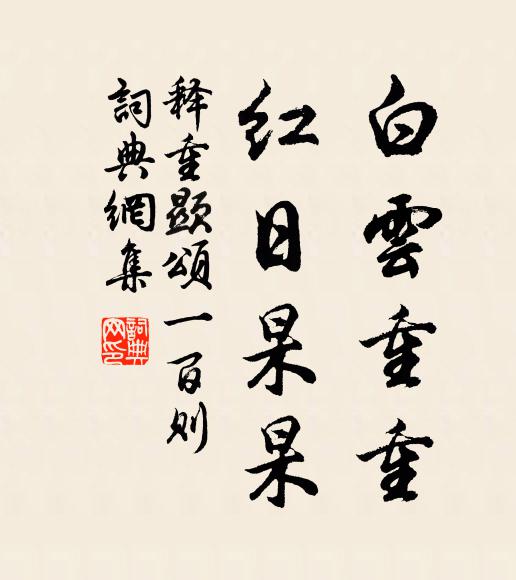 白雲重重
紅日杲杲
释重顯頌一百则
詞典網集
詞典网印